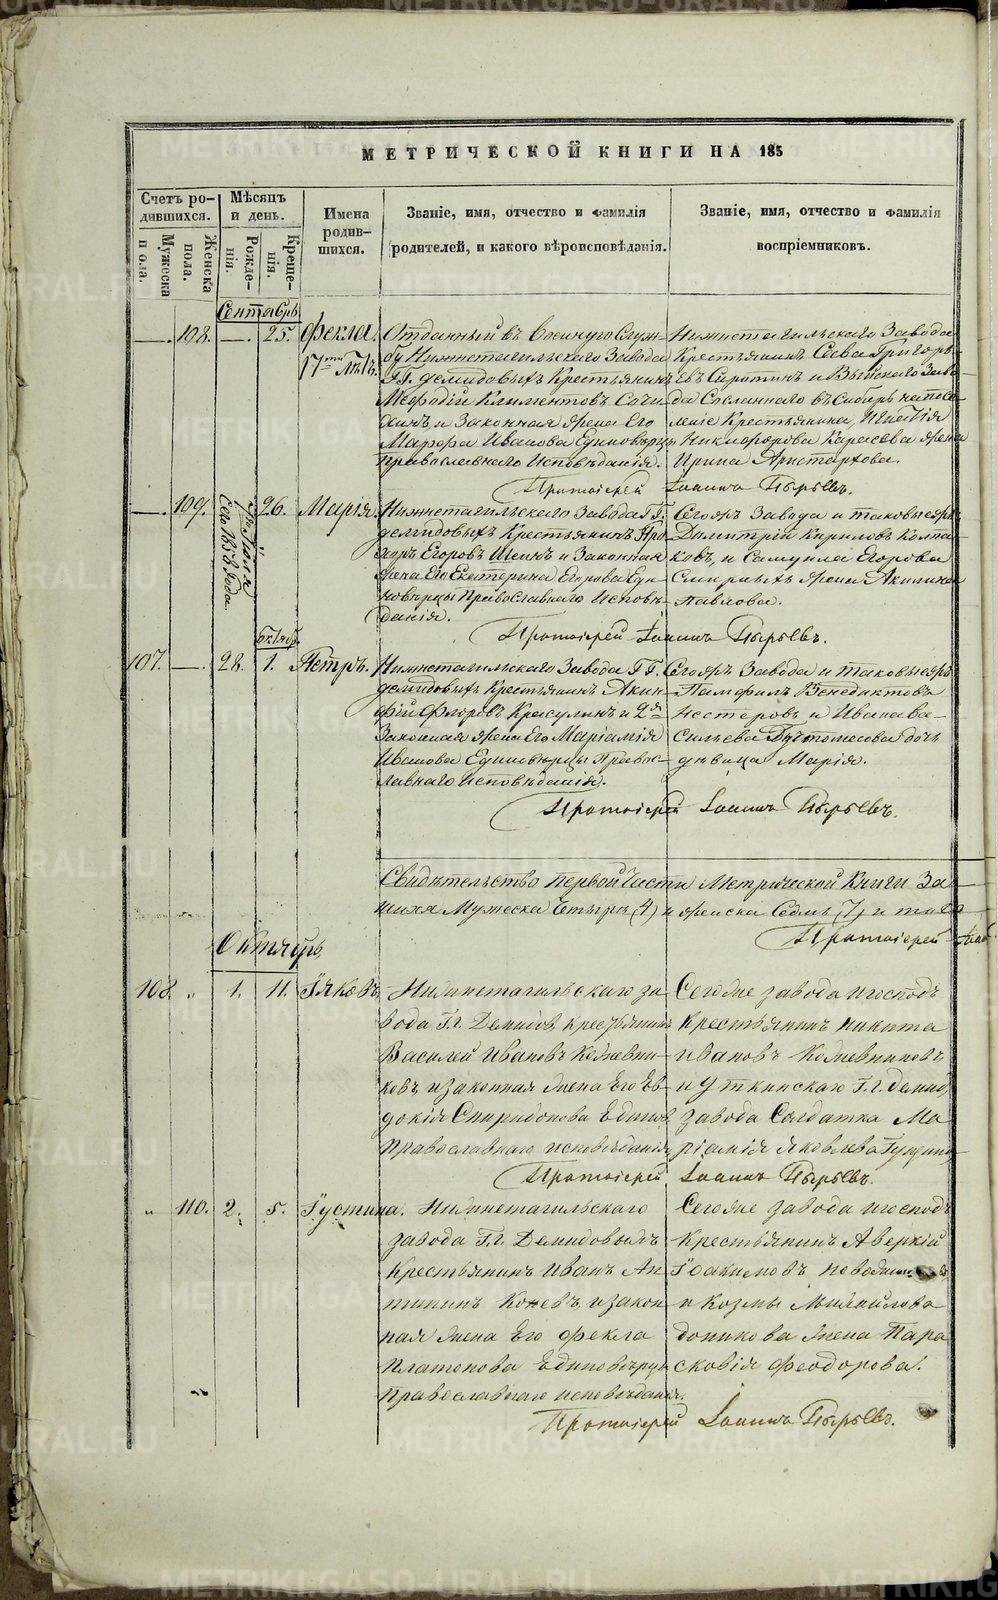 МЕТРИЧЕСКОЙ КНИГИ НА 185
Счетъ ро-
дившихся.
Мужеска
пола.
Женска
пола.
Мѣсяцъ
и день.
Рожде-
нія.
Креще-
нія.
Имена
родив-
шихся.
Званіе, имя, отчество и фамилія
родителей, и какого вѣроисповѣданія.
Званіе, имя, отчество и фамилія
воспріемниковъ.
Сентябрь
—. 108. —. 25. Фекла.
17ти лѣтъ.
Отданный въ Военную Служ-
бу Нижнетагильскаго Завода
ГГ. Демидовыхъ Крестьянинъ
Меѳодій Климентовъ
и Законная Жена Его
Марфа Иванова Единовѣрцы
Православнаго Исповѣданія.
Нижнетагильскаго Завода
Крестьянинъ Сава Григорь-
евъ Сиротинъ и Выйскаго Заво-
да Сосланнаго въ Сибирь на посе-
леніе Крестьянина, Игнатія
Никифорова Карасева Жена
Ирина Аристархова.
Протоіерей Іоаннъ Пырьевъ.
—. 109. 26. Марія.
Іюля
Сего 1858 года
Нижнетагильскаго Завода Г.
Демидовыхъ Крестьянинъ Про-
хоръ Егоровъ Шеинъ и Законная
Жена Его Екатерина Егорова Еди-
новѣрцы Православнаго Исповѣ-
данія.
Сегожъ Завода и таковыежъ
Димитрій Кириловъ Колпа-
ковъ, и Самуила Егорова
Смирныхъ Жена Акилина
Павлова.
Протоіерей Іоаннъ Пырьевъ.
Октябрь
107. —. 28. 1. Петръ.
Нижнетагильскаго Завода ГГ.
Демидовыхъ Крестьянинъ Акин-
фій Флоровъ Красулинъ и 2я
Законная Жена Его Маріамія
Иванова Единовѣрцы Правос-
лавнаго Исповѣданія.
Сегожъ Завода и таковыежъ
Памфилъ Венедиктовъ
Нестеровъ и Ивана Ва-
сильева дочь
дѣвица Марія.
Протоіерей Іоаннъ Пырьевъ.
Свидѣтельство первой Части Метрической Книги За
Мужеска Четыре (4) и Женска Седмь (7) и
Протоіерей Іоан
Октябрь,
108. „ 1. 11. Іяковъ,
Нижнетагильскаго за
вода Г.г. Демидов, крестьянинъ
Василей Ивановъ Кожевни-
ковъ, и законная Жена Его Ев-
докія Спиридонова Единов,
Православнаго исповѣданія,
Сегоже завода и господъ
Крестьянинъ Никита
Ивановъ Кожевниковъ
и Уткинскаго Г.г. Демид,
завода Солдатка Ма
ріамія Яковлева
Протоіерей Іоаннъ Пырьевъ.
„ 110. 2. 5. Іустина.
Нижнетагильскаго
завода Г.г. Демидовыхъ
Крестьянинъ Иванъ Ан
типинъ Коневъ, и закон
ная Жена Его Фекла
Платонова Единовѣрцы
Православнаго исповѣданія.
Сегоже завода и господъ
Крестьянинъ Аверкій
Іоакимовъ
и Козмы Михайлова
Жена Пара
сковія Феодорова.
Протоіерей Іоаннъ Пырьевъ.
METRIKI.GASO-URAL.RU